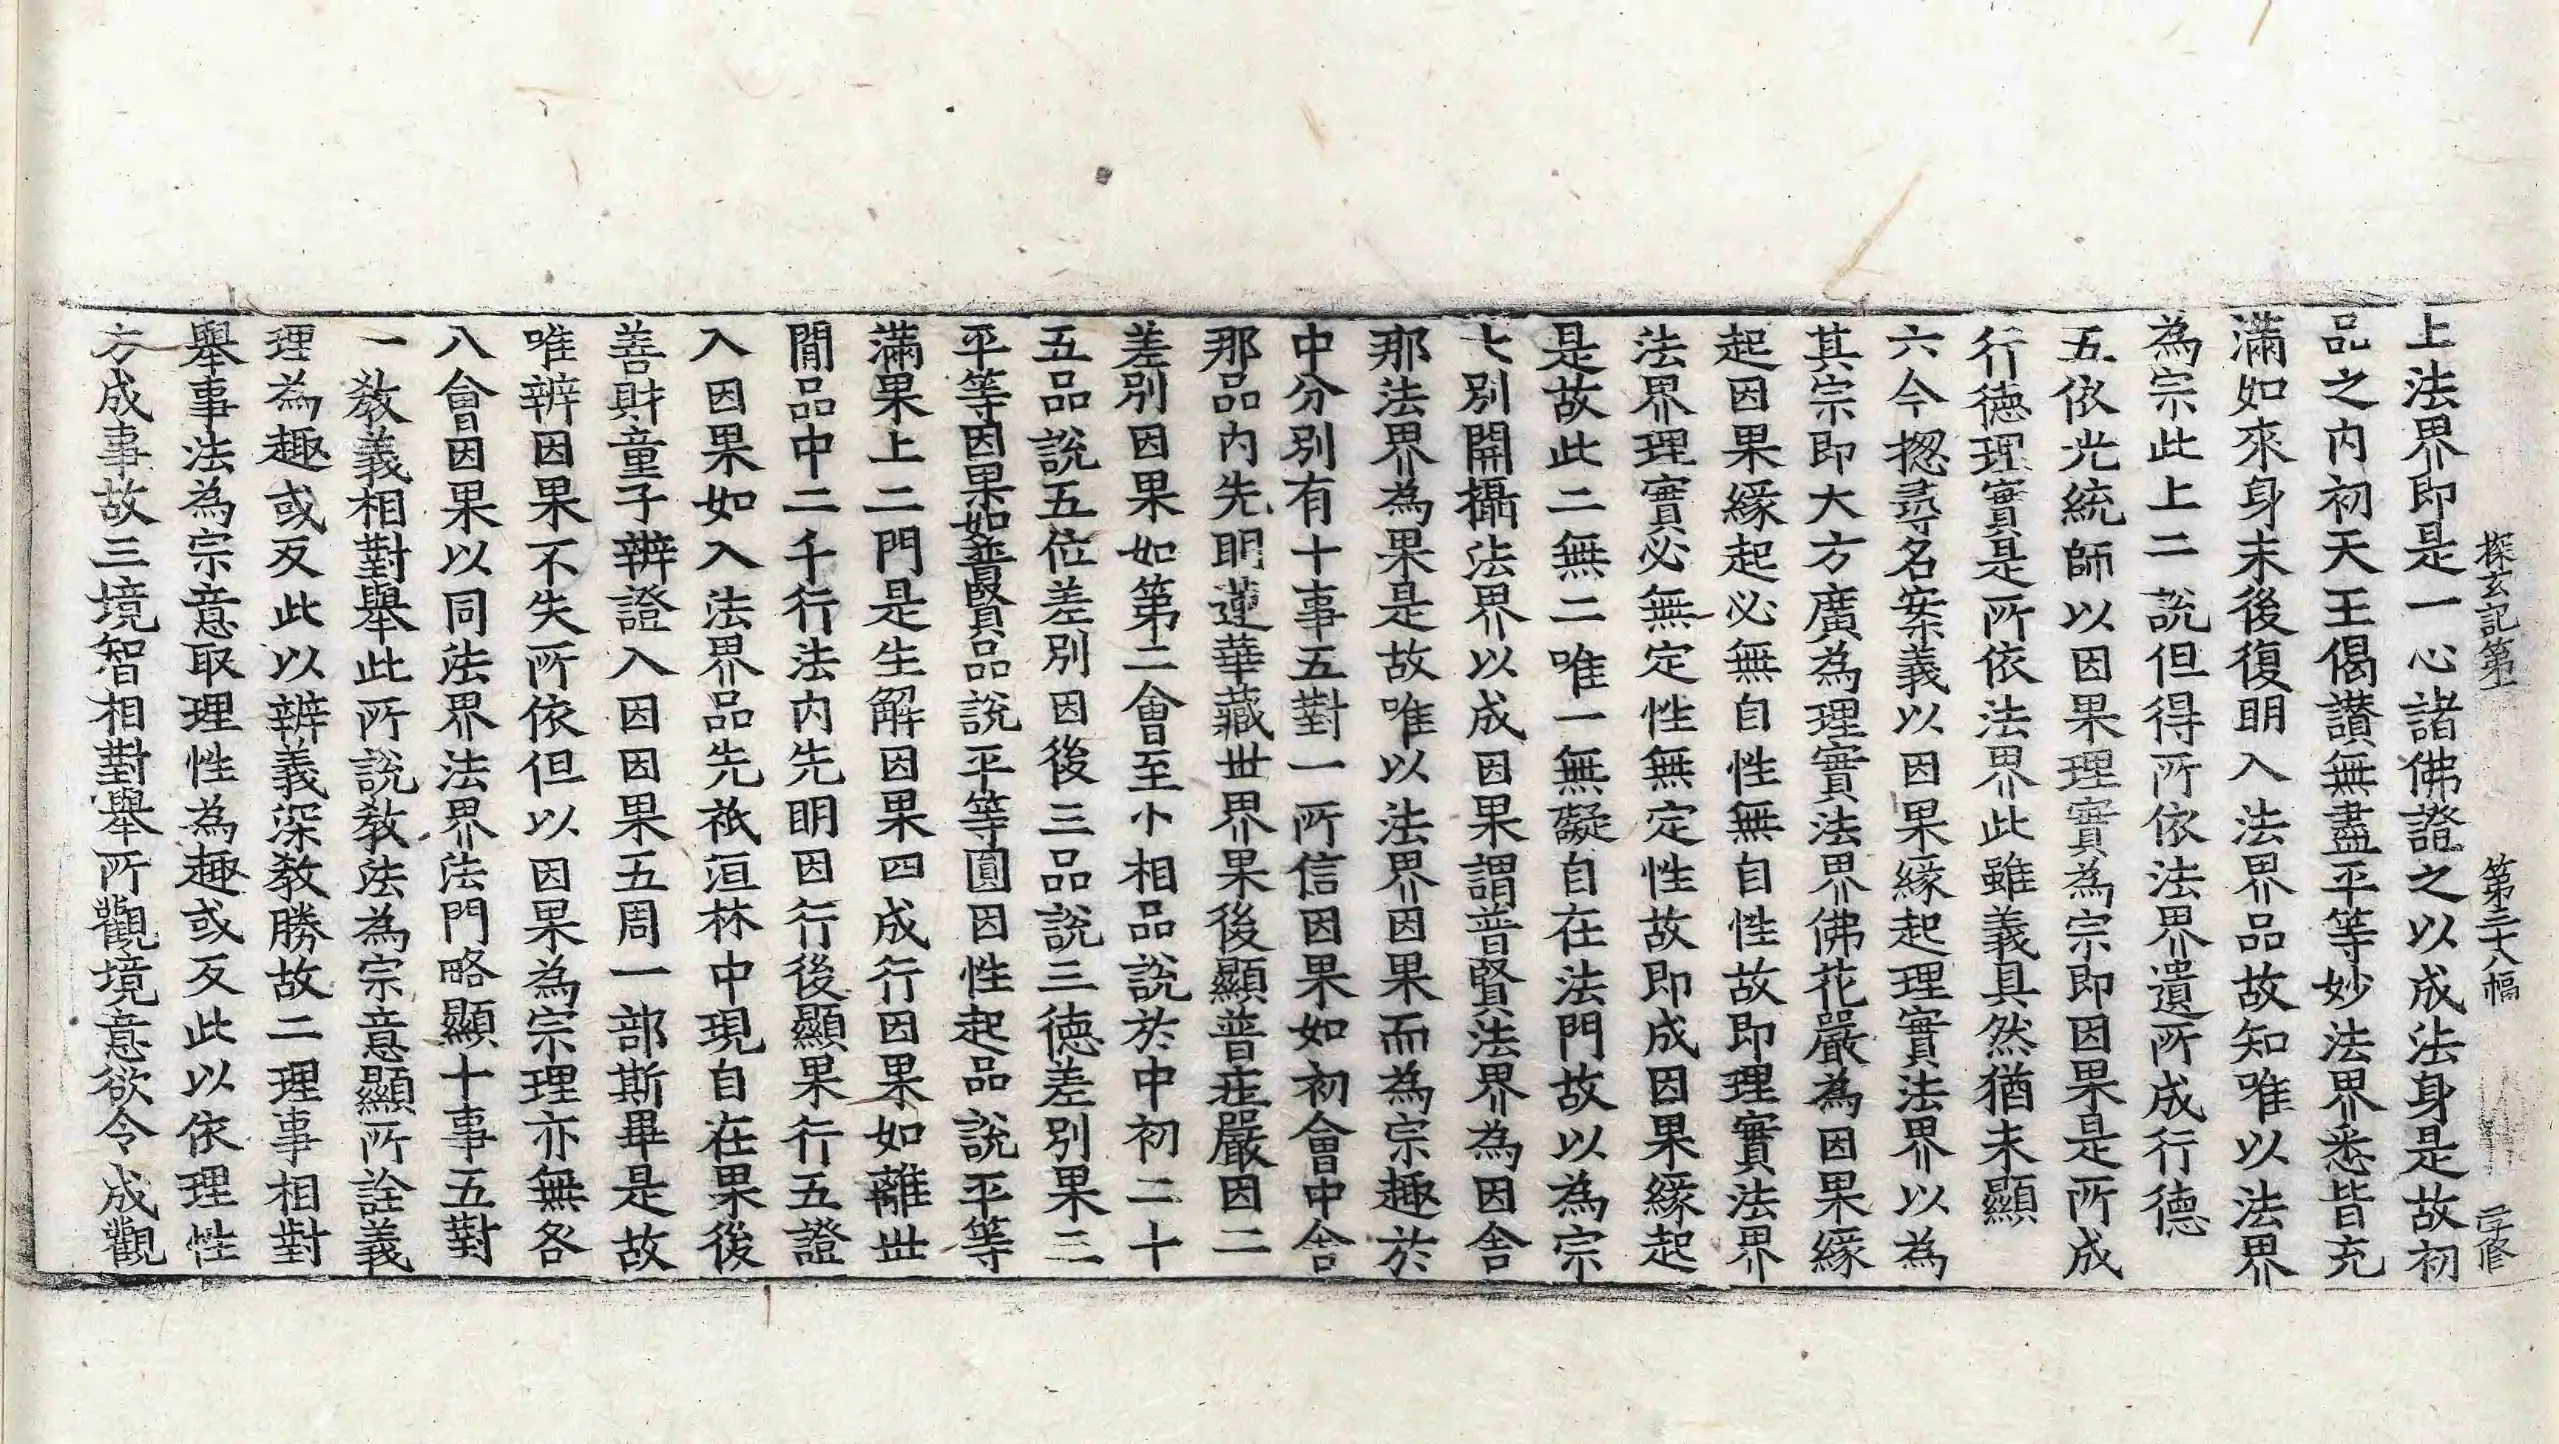 探玄記第一 第二十八幅 子修
上法界即是一心諸佛證之以成法身是故初
品之內初天王偈讃無盡平等妙法界悉皆充
滿如來身末後復明入法界品故知唯以法界
為宗此上二說但得所依法界遺所成行德
五依光統師以因果理實為宗即因果是所成
行德理實是所依法界此雖義具然猶未顯
六今揔尋名案義以因果緣起理實法界以為
其宗即大方廣為理實法界佛花嚴為因果緣
起因果緣起必無自性無自性故即理實法界
法界理實必無定性無定性故即成因果緣起
是故此二無二唯一無礙自在法門故以為宗
七別開攝法界以成因果謂普賢法界為因舍
那法界為果是故唯以法界因果而為宗趣於
中分別有十事五對一所信因果如初會中舍
那品內先明蓮華藏世界果後顯普莊嚴因二
差別因果如第二會至小相品說於中初二十
五品說五位差別因後三品說三德差別果三
平等因果如普賢品說平等圓因性起品說平等
滿果上二門是生解因果四成行因果如離世
間品中二千行法內先明因行後顯果行五證
入因果如入法界品先祇洹林中現自在果後
善財童子辨證入因因果五周一部斯畢是故
唯辨因果不失所依但以因果為宗理亦無咎
八會因果以同法界法界法門略顯十事五對
一教義相對舉此所說教法為宗意顯所詮義
理為趣或反此以辨義深教勝故二理事相對
舉事法為宗意取理性為趣或反此以依理性
方成事故三境智相對舉所觀境意欲令成觀